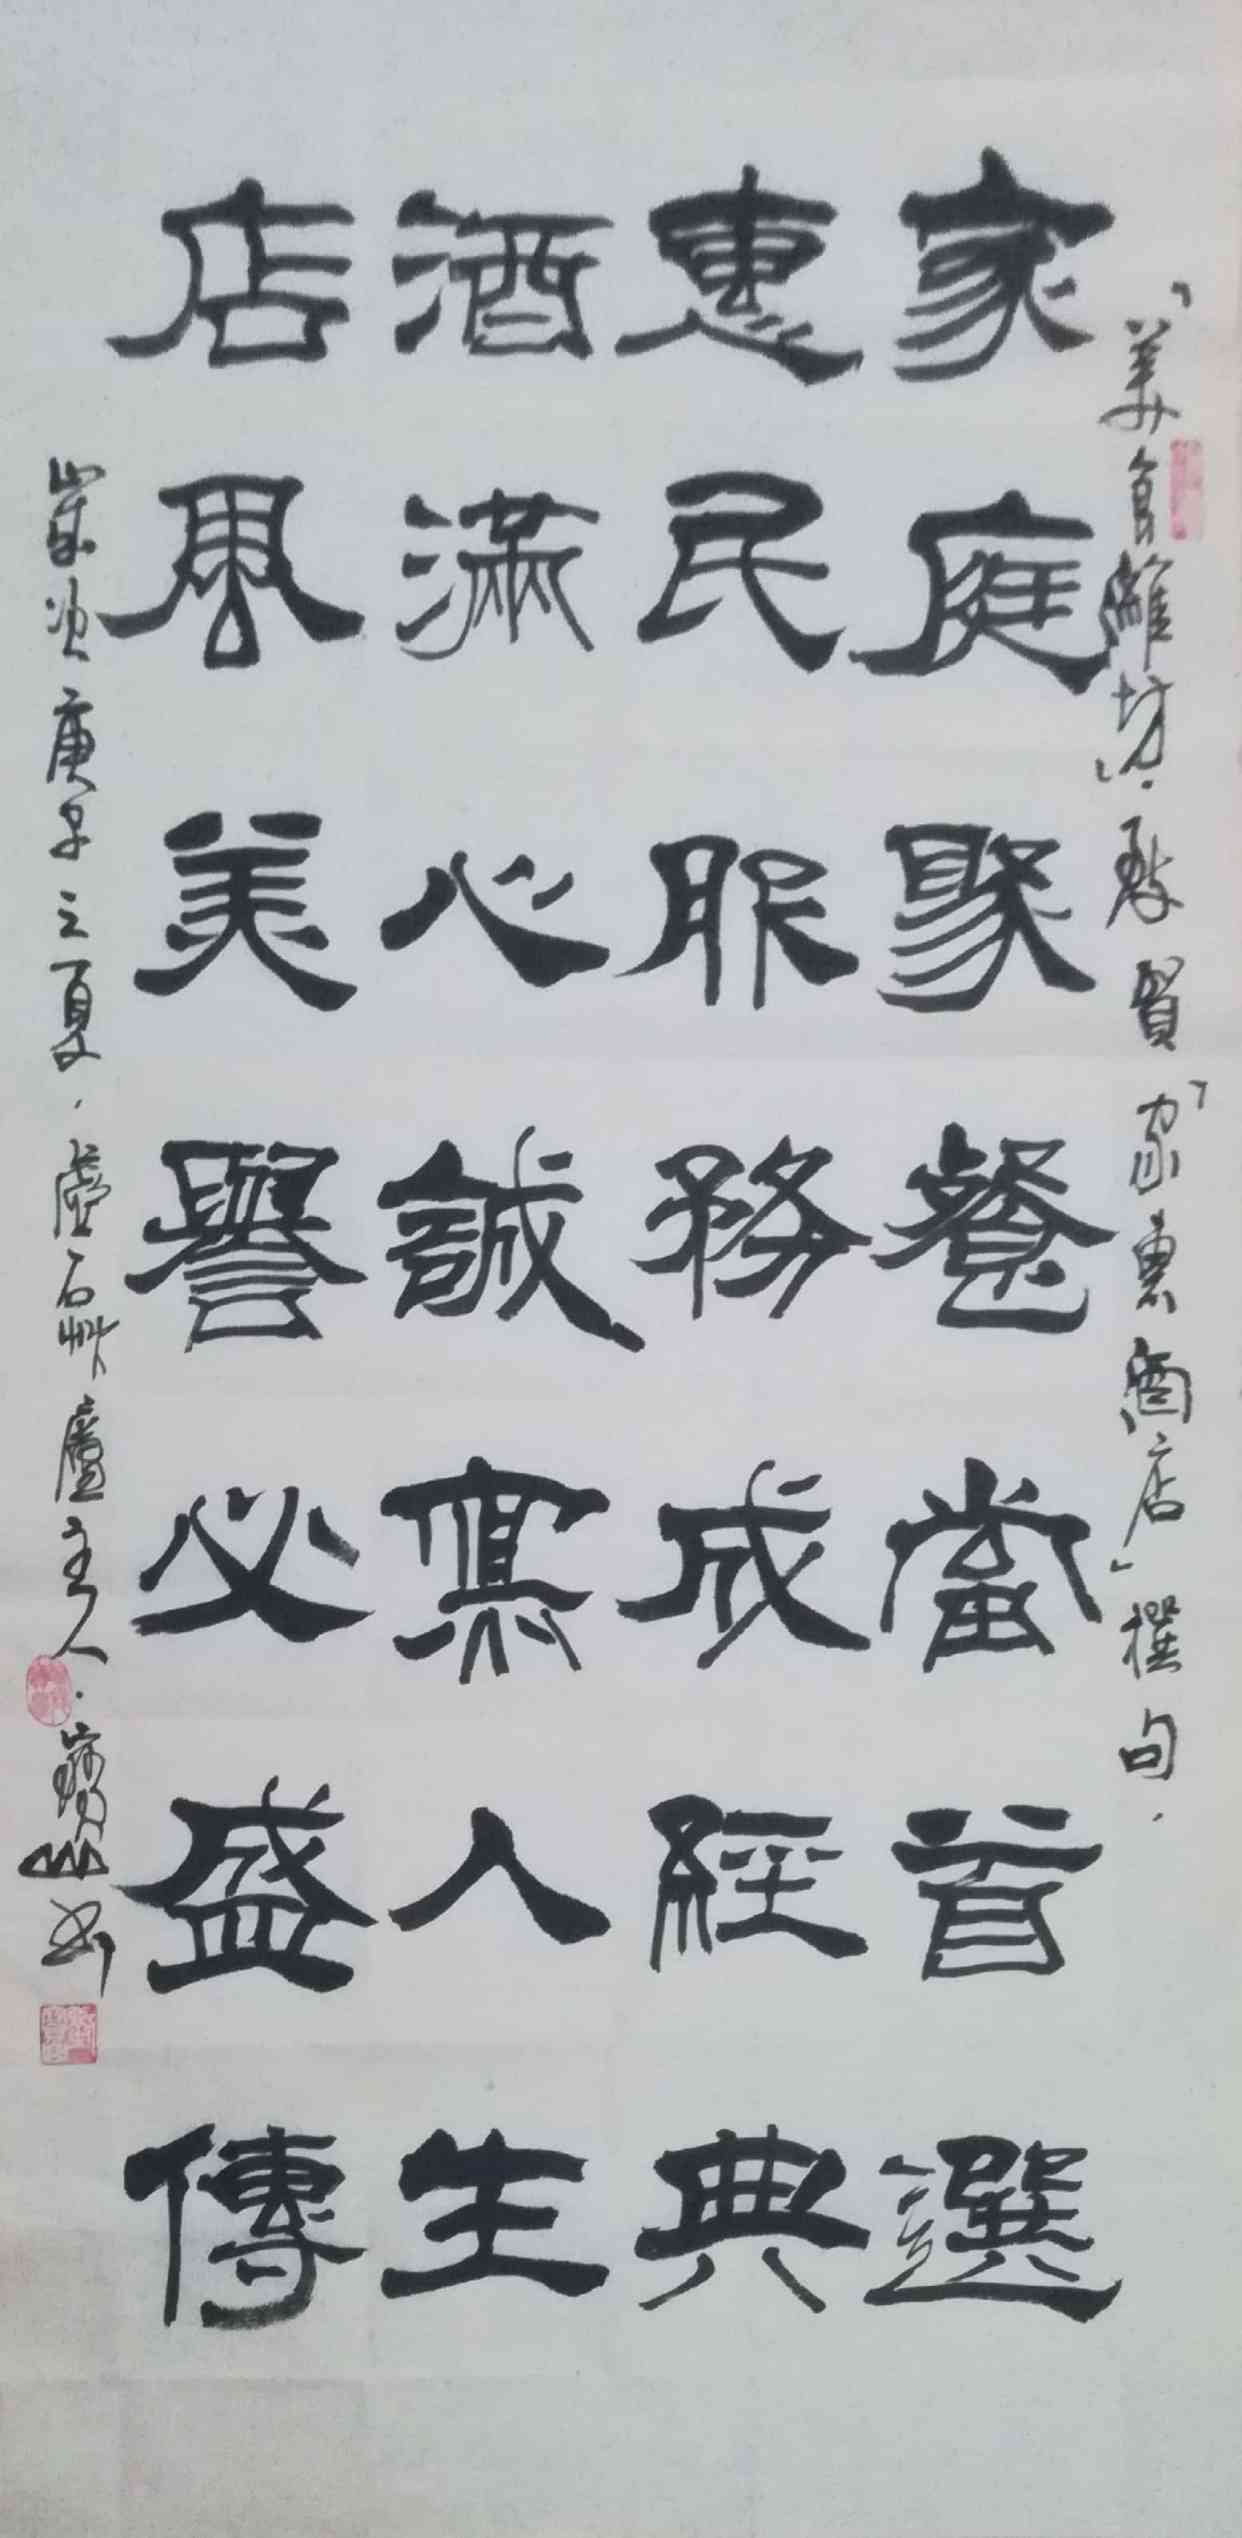 「美食雜坊」．敬賀「家惠酒店」撰句．
家庭聚餐當首選
惠民服務成經典
酒滿心誠寫人生
店風美譽必盛傳
歲次庚子之夏．虛石艸廬主人．寶山書